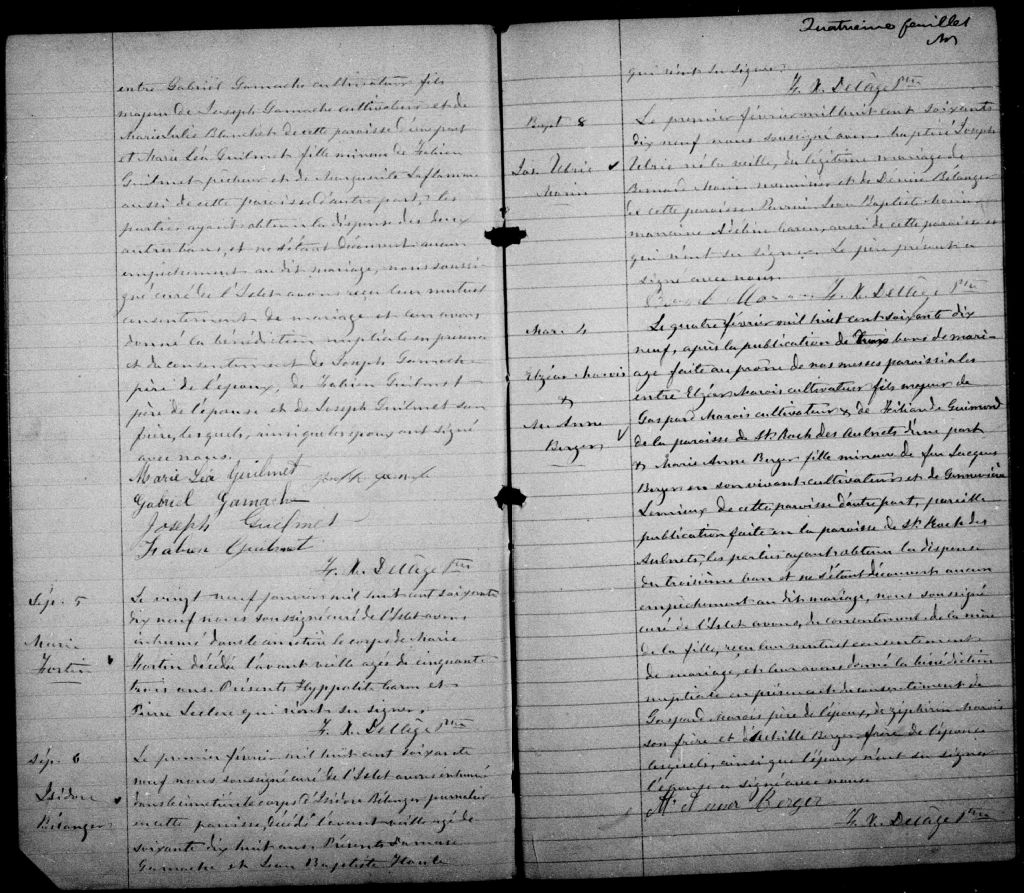 entre Gabriel Gamache cultivateur fils
majeur de Joseph Gamache cultivateur et de
Marie Julie Blanchet de cette paroisse d'une part
et Marie Léa Guilmet fille mineure de Fabien
Guilmet pêcheur et de Marguerite Laflamme
aussi de cette paroisse d'autre part; les
parties ayant obtenu la dispense des deux
autres bans, et ne s'étant découvert aucun
empêchement au dit mariage, nous soussi
gné curé de l'Islet avons reçu leur mutuel
consentement de mariage et leur avons
donné la bénédiction nuptiale en présence
et du consentement de Joseph Gamache
père de l'époux, de Fabien Guilmet
père de l'épouse et de Joseph Guilmet son
frère, lesquels, ainsi que les époux ont signé
avec nous.
Marie Léa Guilmet
Gabriel Gamache
Joseph Guilmet
Fabien Guilmet
F. X. Delâge Ptre
Sép. 5
Marie
Fortin
Le vingt neuf janvier mil huit cent soixante
dix neuf nous soussigné curé de l'Islet avons
inhumé dans le cimetière le corps de Marie
Fortin décédée l'avant veille agée de cinquante
trois ans. Présents Hyppolite Caron et
Pierre Leclerc qui n'ont su signer.
F. X. Delâge Ptre
Sép. 6
Isidore
Bélanger
Le premier février mil huit cent soixante
neuf nous soussigné curé de l'Islet avons inhumé
dans le cimetière le corps d'Isidore Bélanger journalier
en cette paroisse, décédé l'avant veille agé de
soixante dix huit ans. Présents Damase
Gamache et Jean Baptiste
Quatrième feuillet
qui n'ont su signer.
F. X. Delâge Ptre
Bapt 8
Jos. Ulric
Morin
Le premier février mil huit cent soixante
dix neuf nous soussigné avons baptisé Joseph
Ulric né la veille, du légitime mariage de
Bernard Morin menuisier et de Bélanger
de cette paroisse. Parrain Jean Baptiste Morin
marraine Adéline Caron, aussi de cette paroisse et
qui n'ont su signer. Le père présent a
signé avec nous.
Morin F. X. Delâge Ptre
Mari 4
Elzéar Marois
&
M. Anne
Berger
Le quatre février mil huit cent soixante dix
neuf, après la publication de trois bans de mari
age faite au prône de nos messes paroissiales
entre Elzéar Marois cultivateur fils majeur de
Gaspard Marois cultivateur & de Guimond
de la paroisse de St. Roch des Aulnets d'une part
& Marie Anne Berger fille mineure de feu Jacques
Berger en son vivant cultivateur et de Geneviève
Lemieux de cette paroisse d'autre part, pareille
publication faite en la paroisse de St. Roch des
Aulnets, les parties ayant obtenu la dispense
du troisième ban et ne s'étant découvert aucun
empêchement au dit mariage, nous soussigné
curé de l'Islet avons, du consentement de la mère
de la fille, reçu leur mutuel consentement
de mariage, et leur avons donné la bénédiction
nuptiale en présence et du consentement de
Gaspard Marois père de l'époux, de Zéphirin Marois
son frère et d'Achille Berger frère de l'épouse
lesquels, ainsi que l'époux n'ont su signer
l'épouse a signé avec nous
Berger
F. X. Delâge Ptre